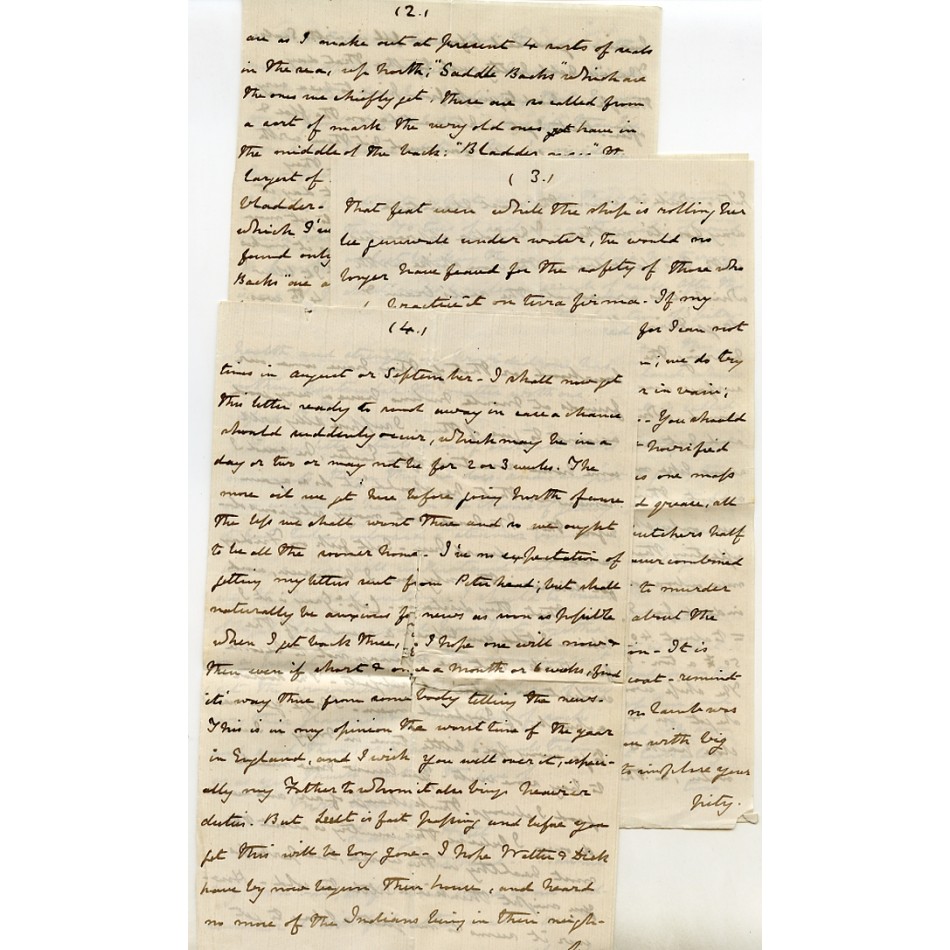 (2.)
are as I make out at present 4 sorts of seals
in the sea, up North; "Saddle Backs" which are
the ones we chiefly get, these are so called from
a sort of mark the very old ones have in
the middle of the back; "Bladder
largest of
bladder-
which I've
found only
Backs" are a
(3.)
that feat even while the ship is rolling her
lee gunwale under water, he would no
longer have feared for the safety of those who
practice it on terra firma. If my
for I can not
; we do try
r in vain;
You should
horrified
is one mass
d grease, all
butchers half
ever combined
to murder
about the
on. It is
coat - remind
lamb was
with big
to implore your
pity.
(4.)
times in August or September. I shall now get
this letter ready to send away in case a chance
should suddenly occur, which may be in a
day or two or may not be for 2 or 3 weeks. The
more oil we get here before going North of course
the less we shall want there and so we ought
to be all the sooner home. I've no expectation of
getting my letters sent from Peterhead; but shall
naturally be anxious for news as soon as possible
when I get back there, I hope one will now &
then even if short & once a month or 6 weeks, find
its' way there from some body telling the news.
This is in my opinion the worst time of the year
in England, and I wish you well over it, especi-
ally my Father to whom it also brings heavier
duties. But Lent is fast passing and before you
get this will be long gone - I hope Walter & Dick
have by now begun their house, and heard
no more of the Indians being in their neigh-